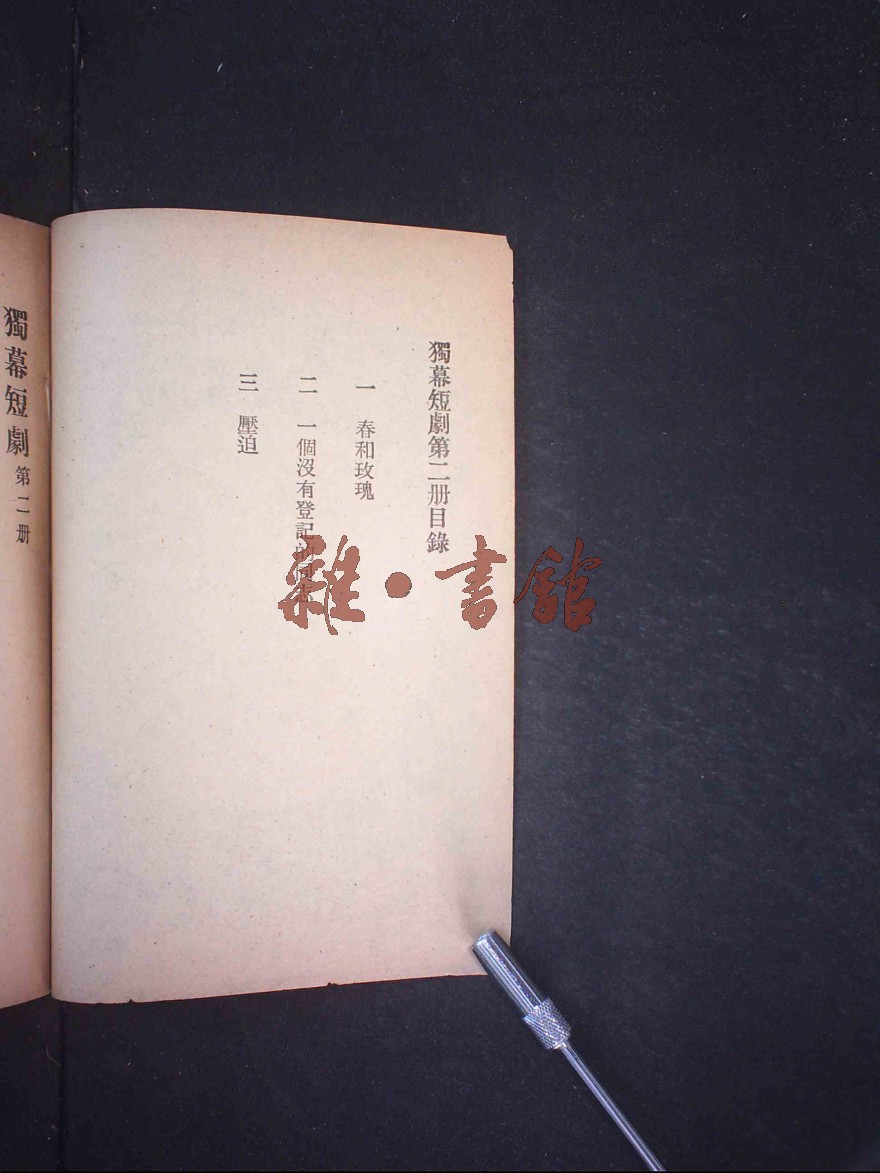 獨幕短劇第二册目錄
一 春和玫瑰
二 一個沒有登記的同志
三 壓迫
獨幕短劇 第二册
雜·書館